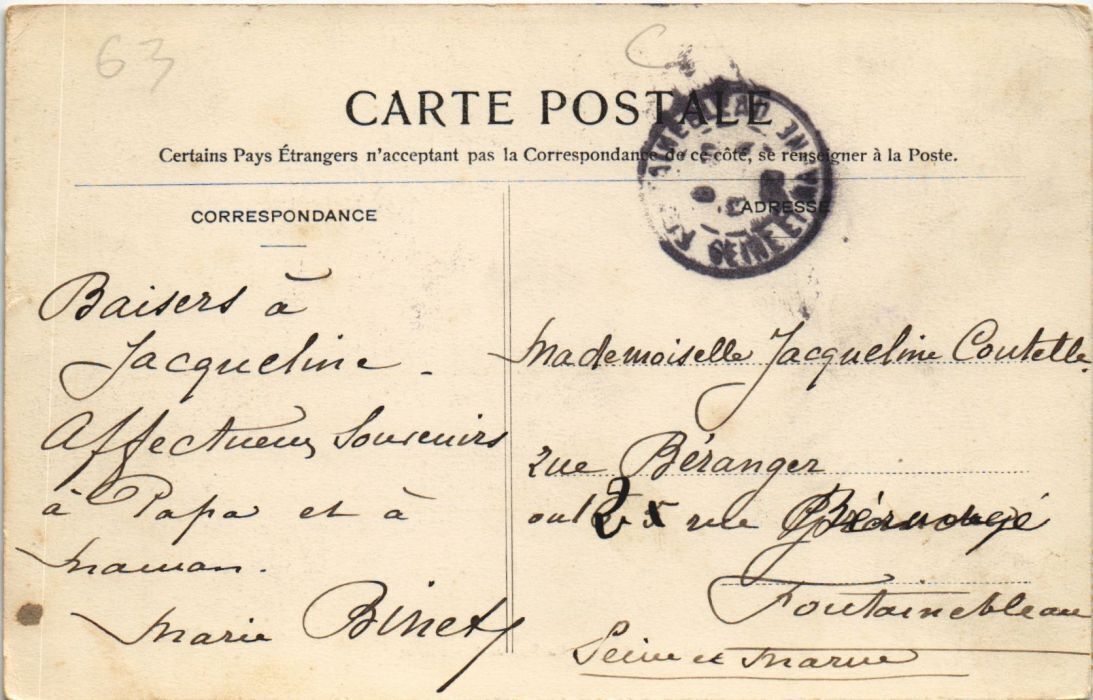 63
CARTE POSTALE
Certains Pays Étrangers n'acceptant pas la Correspondance de ce côté, se renseigner à la Poste.
CORRESPONDANCE
ADRESSE
FONTAINEBLEAU
SEINE ET MARNE
Baisers à
Jacqueline.
Affectueux Souvenirs
à Papa et à
Maman.
Marie Binet
Mademoiselle Jacqueline Coutelle.
rue Béranger
rue
Fontainebleau
Seine et Marne